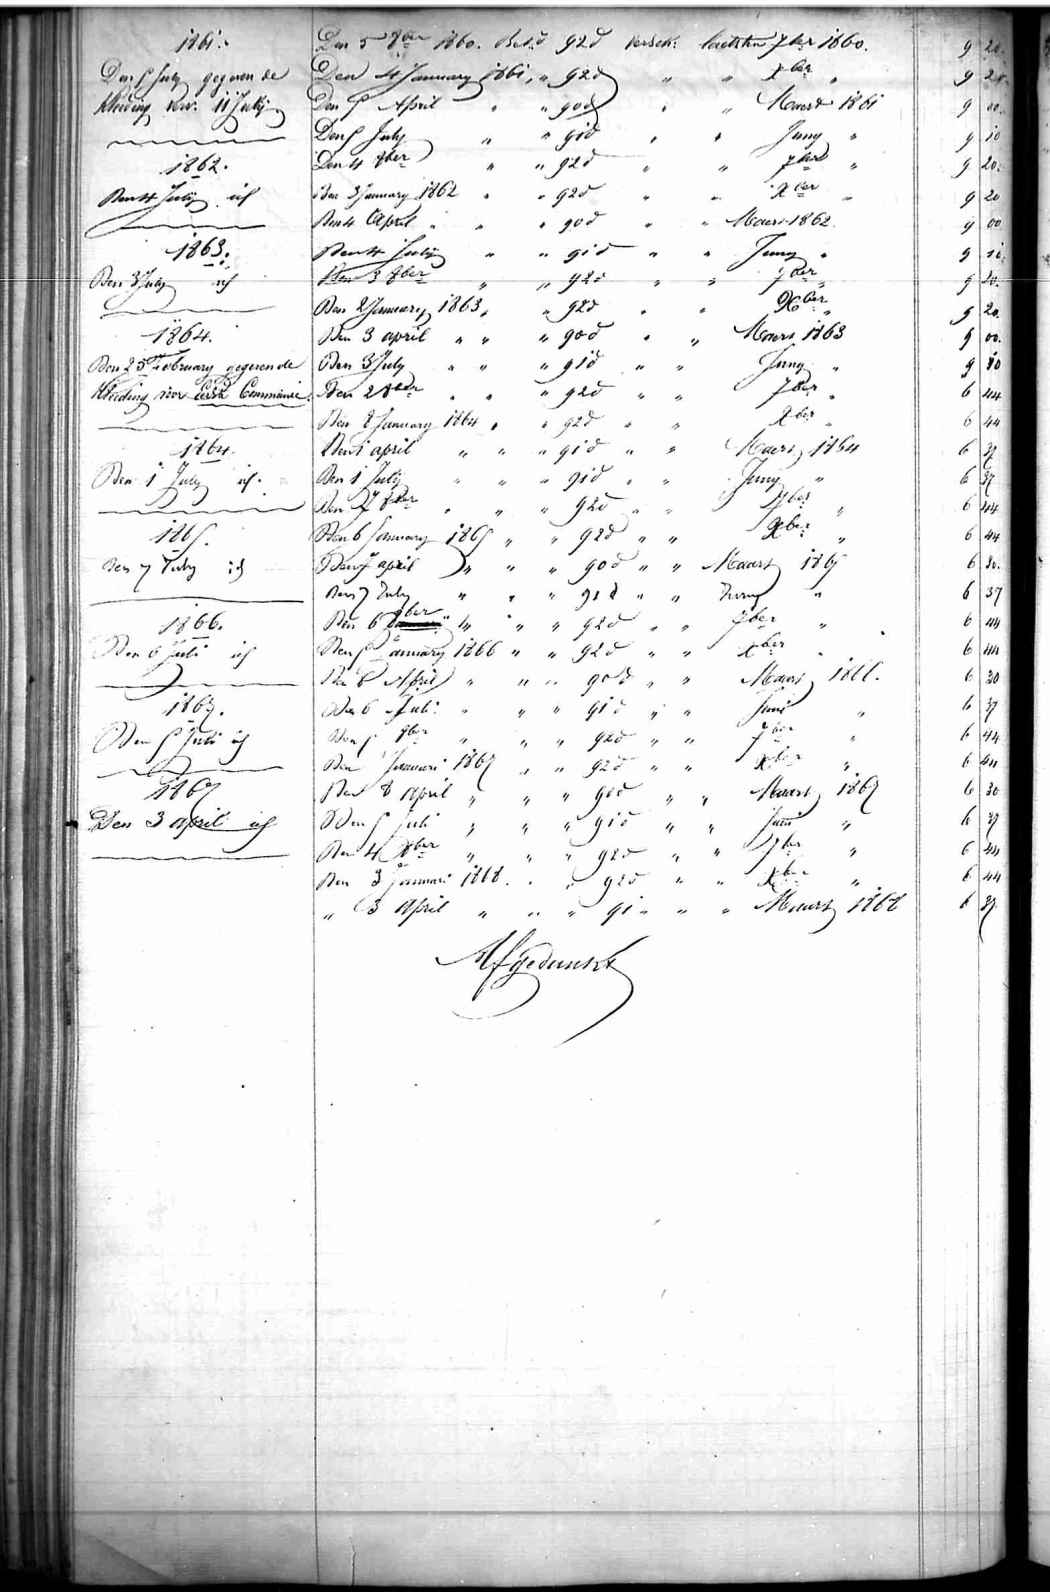 1861.
Den 5 July gegeven de
kleeding voor 11 July
1862.
Den 4 July id
1863.
Den 3 July id
1864.
Den 25 February gegeven de
kleeding voor Eerste Communie
1864.
Den 1 July id.
1865.
Den 7 July id
1866.
Den 6 Juli id
1867.
Den 5 Juli id
1867
Den 3 april id
Den 5 8ber 1860. Bet.d 92d versch: laetsten 7ber 1860. 9 20.
Den 4 January 1861, " 92d " " Xber " 9 20.
Den 5 April " " 90d " " Maert 1861 9 00.
Den 5 July " " 91d " " Juny " 9 10
Den 4 8ber " " 92d " " 7ber " 9 20.
Den 3 January 1862 " " 92d " " Xber " 9 20
Den 4 April " " 90d " " Maert 1862. 9 00
Den 4 July " " 91d " " Juny " 9 10.
Den 3 8ber " " 92d " " 7ber " 9 20.
Den 2 January 1863, " 92d " " Xber " 9 20.
Den 3 april " " " 90d " " Maert 1863 9 00.
Den 3 July " " " 91d " " Juny " 9 10
Den 2 8ber " " " 92d " " 7ber " 6 44
Den 8 January 1864 " " 92d " " Xber " 6 44
Den 1 april " " " 91d " " Maert 1864 6 37
Den 1 July " " " 91d " " Juny " 6 37
Den 7 8ber " " " 92d " " 7ber " 6 44
Den 6 January 1865 " " 92d " " Xber " 6 44
Den 7 april " " " 90d " " Maart 1865 6 30.
Den 7 July " " " 91d " " Juny " 6 37
Den 6 8ber " " " 92d " " 7ber " 6 44
Den 5 January 1866 " " 92d " " Xber " 6 44
Den 6 April " " " 90d " " Maart 1866. 6 30
Den 6 Juli " " " 91d " " Juni " 6 37
Den 5 8ber " " " 92d " " 7ber " 6 44
Den Januari 1867 " " 92d " " Xber " 6 44
Den 8 april " " " 90d " " Maart 1867 6 30
Den 5 Juli " " " 91d " " Juni " 6 37
Den 4 8ber " " " 92d " " 7ber " 6 44
Den 3 Januari 1868. " " 92d " " Xber " 6 44
" 3 April " " " 91 " " " Maart 1868 6 37
Afgedankt